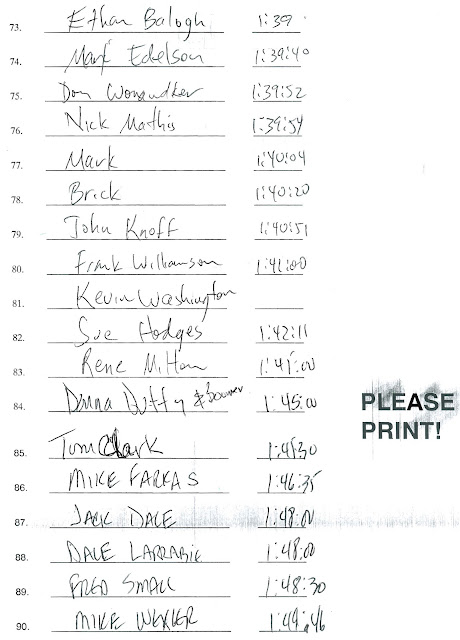 73. Ethan Balogh 1:39
74. Mark Edelson 1:39:40
75. Don 1:39:52
76. Nick Mathis 1:39:54
77. Mark 1:40:04
78. Brick 1:40:20
79. John Knoff 1:40:51
80. Frank Williamson 1:41:00
81. Kevin Washington
82. Sue Hodges 1:42:11
83. Rene Milton
84. Donna Duffy & 1:45:00
PLEASE
PRINT!
85. Tom Clark 1:45:30
86. MIKE FARKAS 1:46:35
87. JACK DALE 1:48:00
88. DALE LARRABIE 1:48:00
89. FRED SMALL 1:48:30
90. MIKE WEXLER 1:49:46